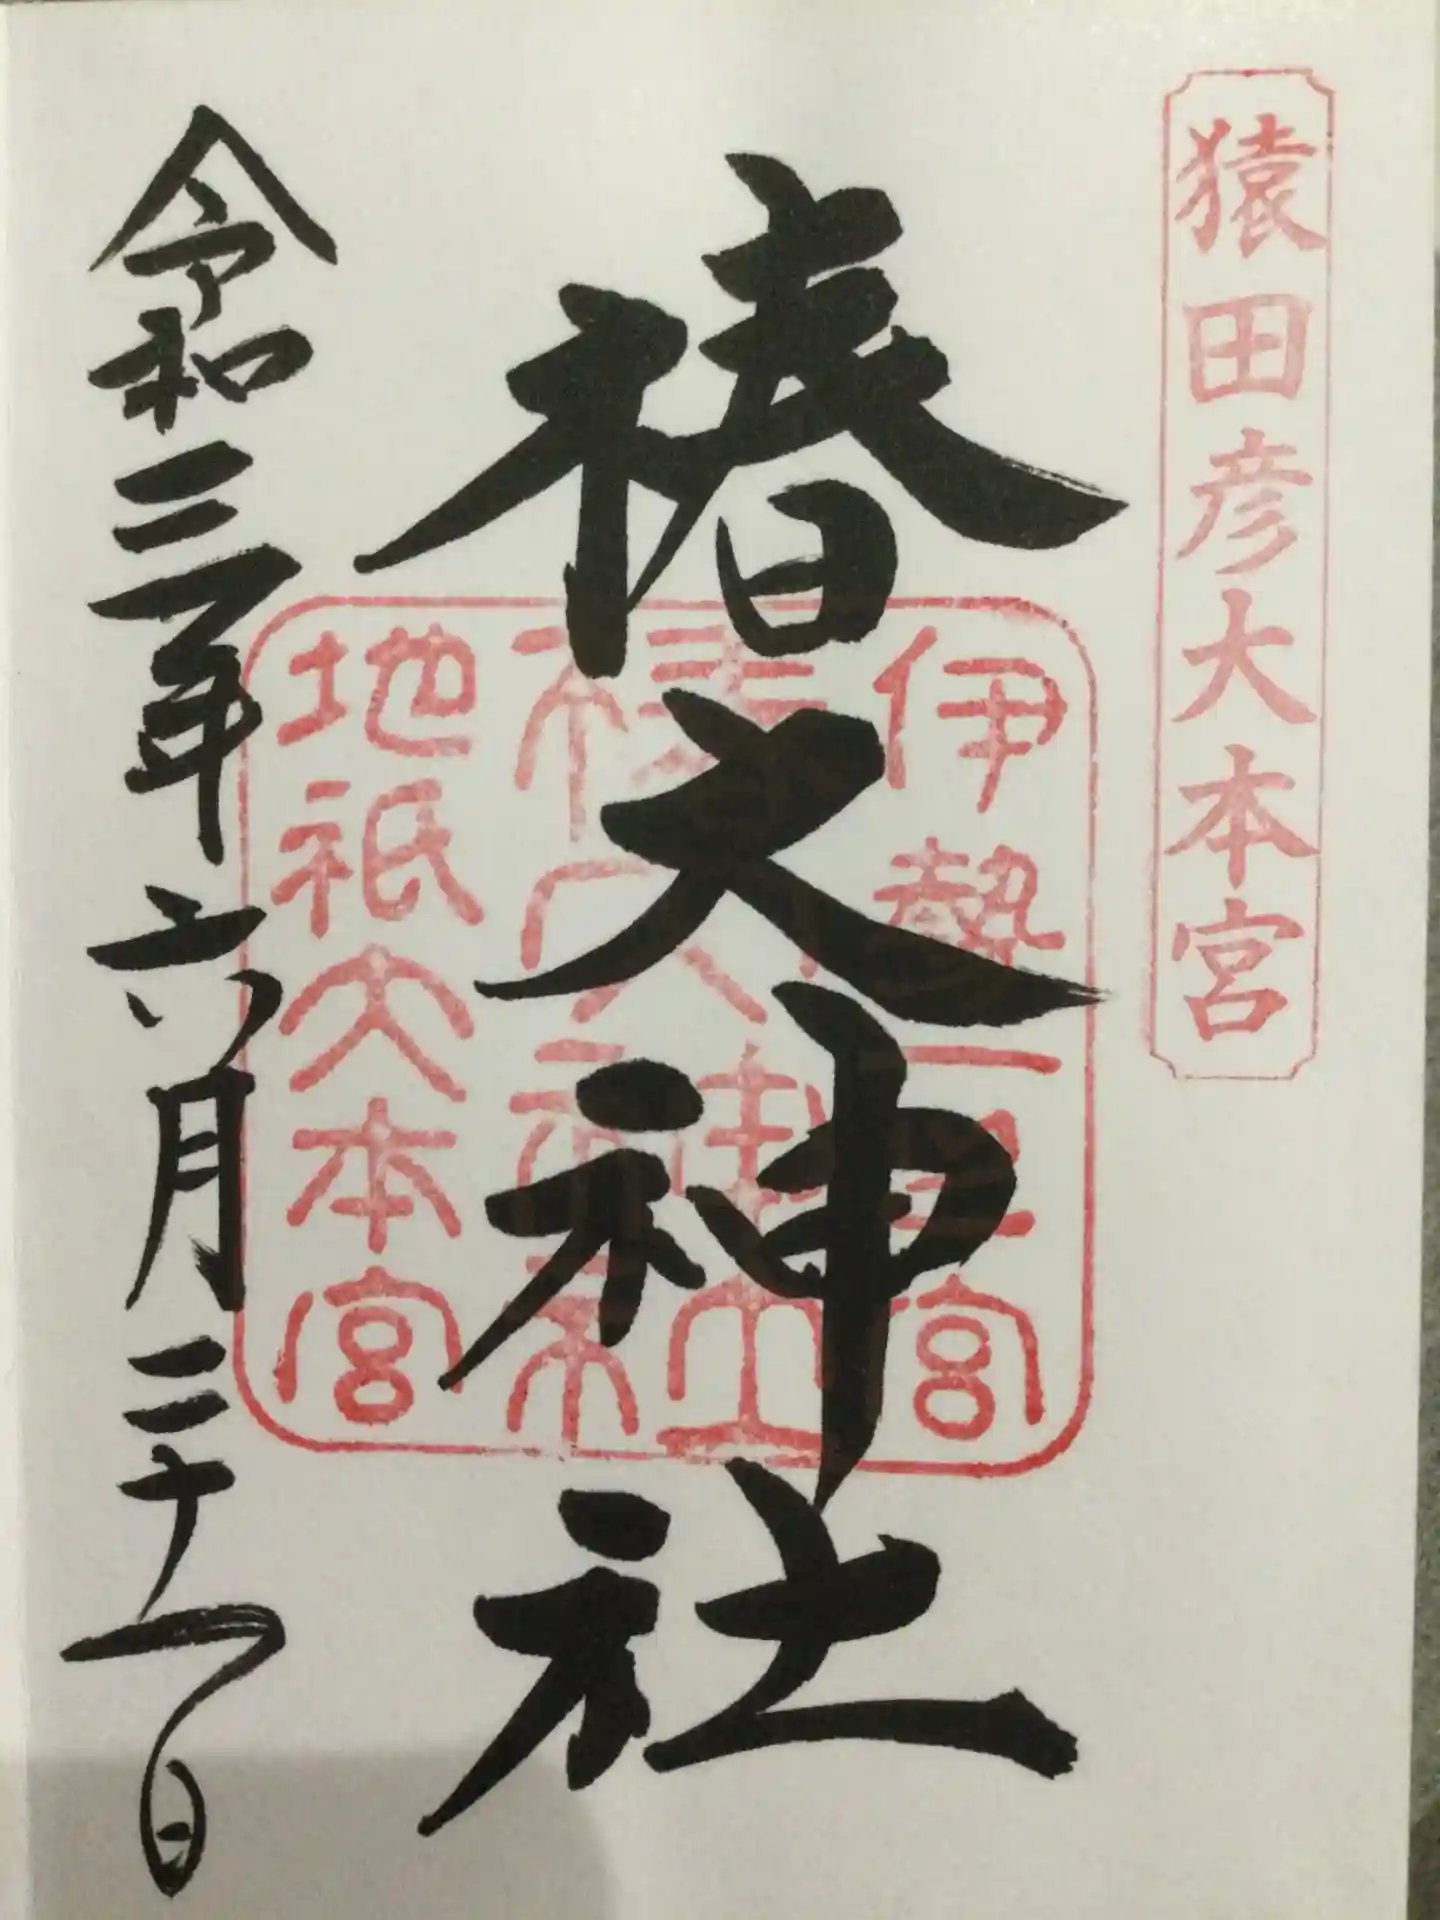 猿田彦大本宮
椿大神社
伊勢一之宮
椿大神社
地祇大本宮
令和三年六月二十一日